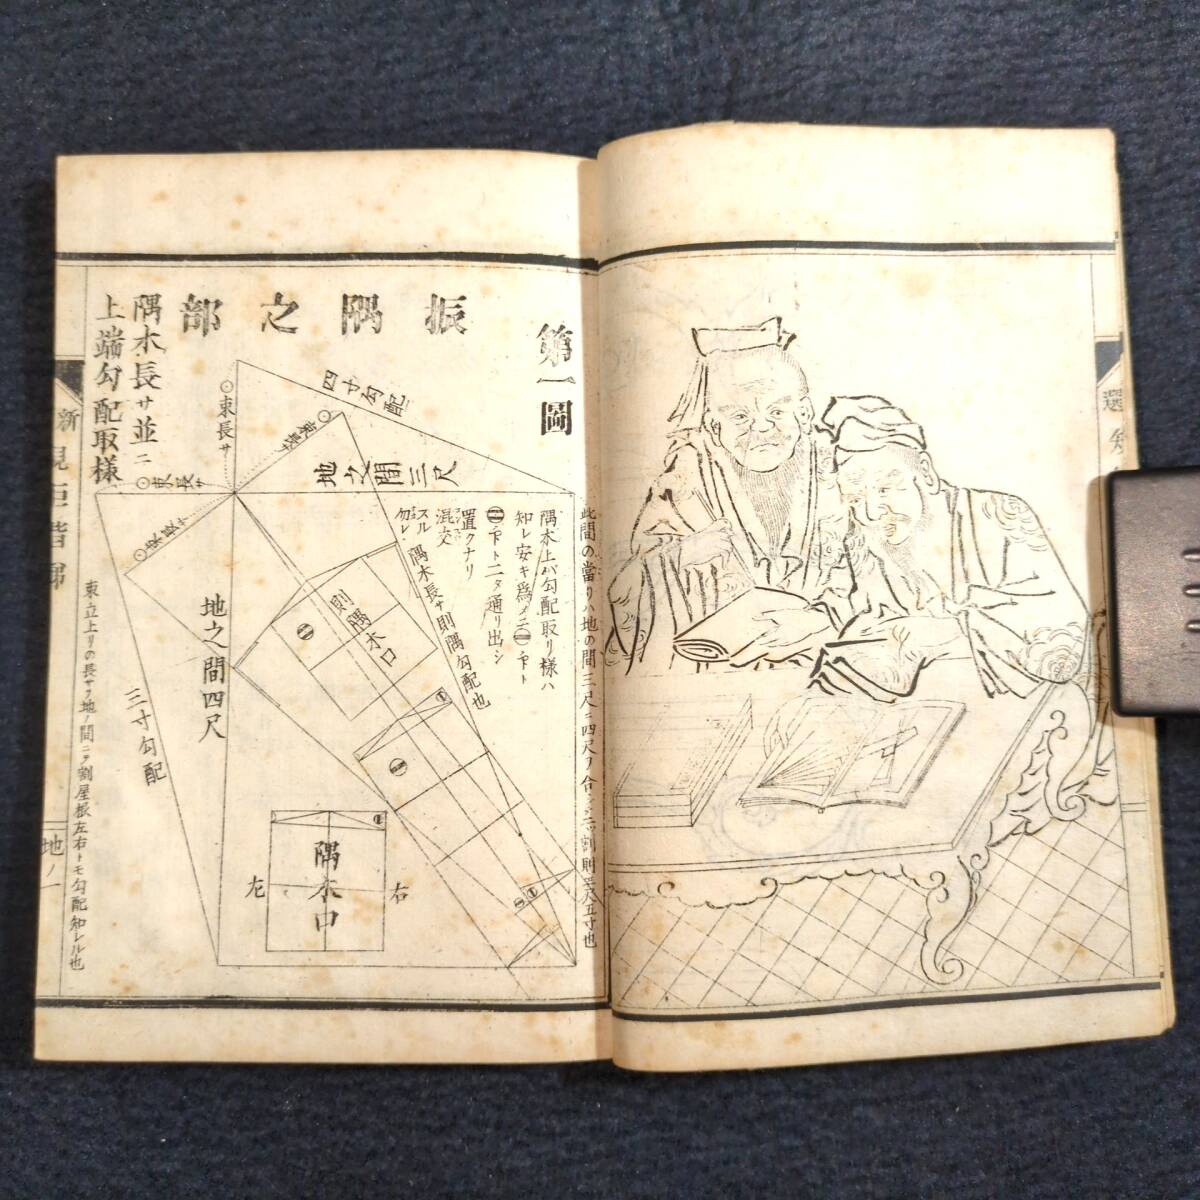 選
第一圖
振隅之部
此間の當リハ地の間三尺ニ四尺ヲ合シ二ニ割則三尺五寸也
隅木上バ勾配取リ様ハ
知レ安キ爲メニ㊀下ト
㊁下ト二タ通リ出シ
置クナリ
混交
スル
勿レ
隅木長サ則隅勾配也
四寸勾配
地之間三尺
束長サ
束長サ
束長サ
則隅木口
地之間四尺
三寸勾配
隅木口
右
左
隅木長サ並ニ
上端勾配取様
束立上リの長サヲ地ノ間ニテ割屋根左右トモ勾配知レル也
新
地ノ一